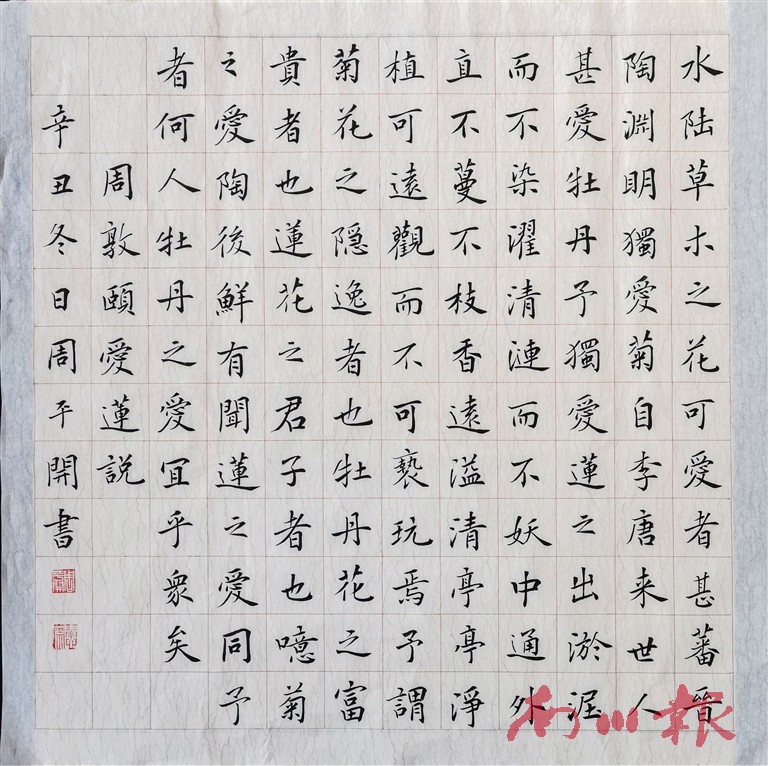 水陆草木之花可愛者甚蕃晉
陶淵明獨愛菊自李唐来世人
甚愛牡丹予獨愛蓮之出淤泥
而不染濯清漣而不妖中通外
直不蔓不枝香遠溢清亭亭淨
植可遠觀而不可褻玩焉予謂
菊花之隠逸者也牡丹花之富
貴者也蓮花之君子者也噫菊
之愛陶後鮮有聞蓮之愛同予
者何人牡丹之愛宜乎衆矣
周敦頤愛蓮説
辛丑冬日周平開書
南川報